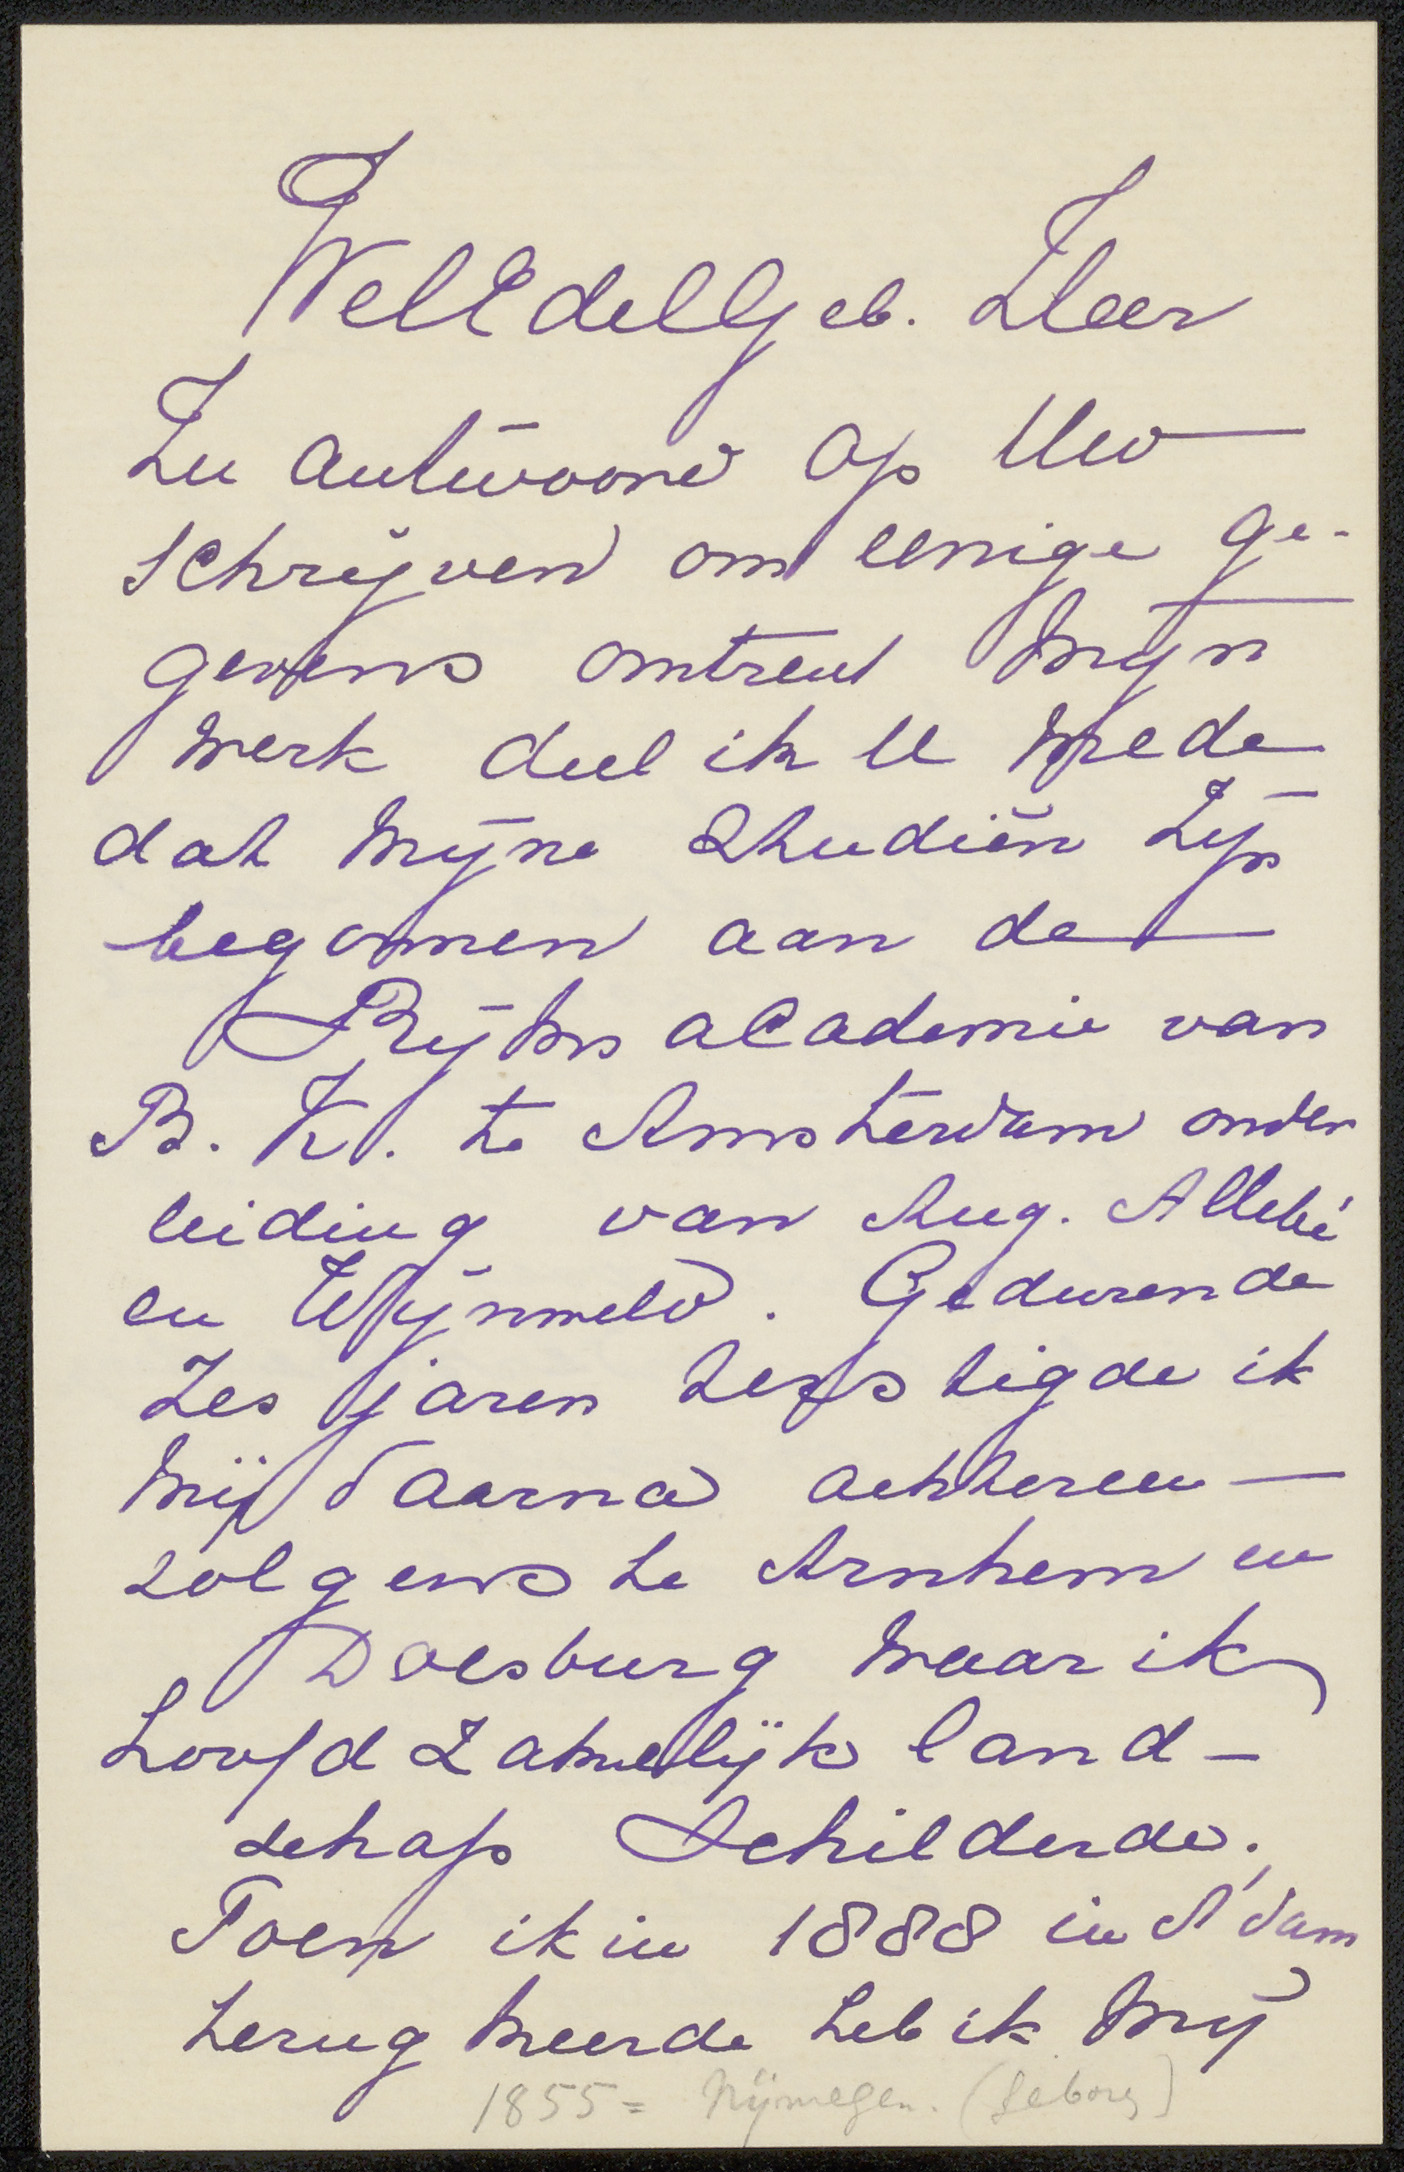 WelEdelGeb. Heer
In antwoord op Uw
schrijven om eenige ge-
gevens omtrent mijn
werk deel ik U mede
dat mijne Studiën zijn
begonnen aan de
Rijks academie van
B. K. te Amsterdam onder
leiding van Aug. Allebé
en Wijnveld. Gedurende
zes jaren vestigde ik
mij daarna achtereen-
volgens te Arnhem en
Doesburg waar ik
hoofdzakelijk land-
schap schilderde.
Toen ik in 1888 in A'dam
terug keerde heb ik mij
1855 = Nijmegen. (geboren)